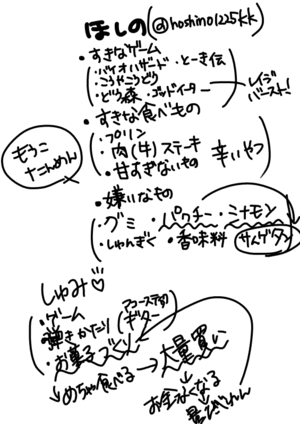 ほしの(@hoshino1225kk)
・すきなゲーム
・バイオハザード ・とーき伝
・こうやこうどり
・どう森 ・ゴッドイーター
レイジバースト!
・すきな食べもの
・プリン
・肉(牛)ステーキ
・甘すぎないもの
辛いやつ
もろこ
・嫌いなもの
・グミ ・パクチー ・シナモン
・しゅんぎく ・香味料
サムゲタン
しゅみ♡
・ゲーム
・弾きかたり(アコースティックギター)
・お菓子づくり
→めちゃ食べる→大量買い
お金なくなる